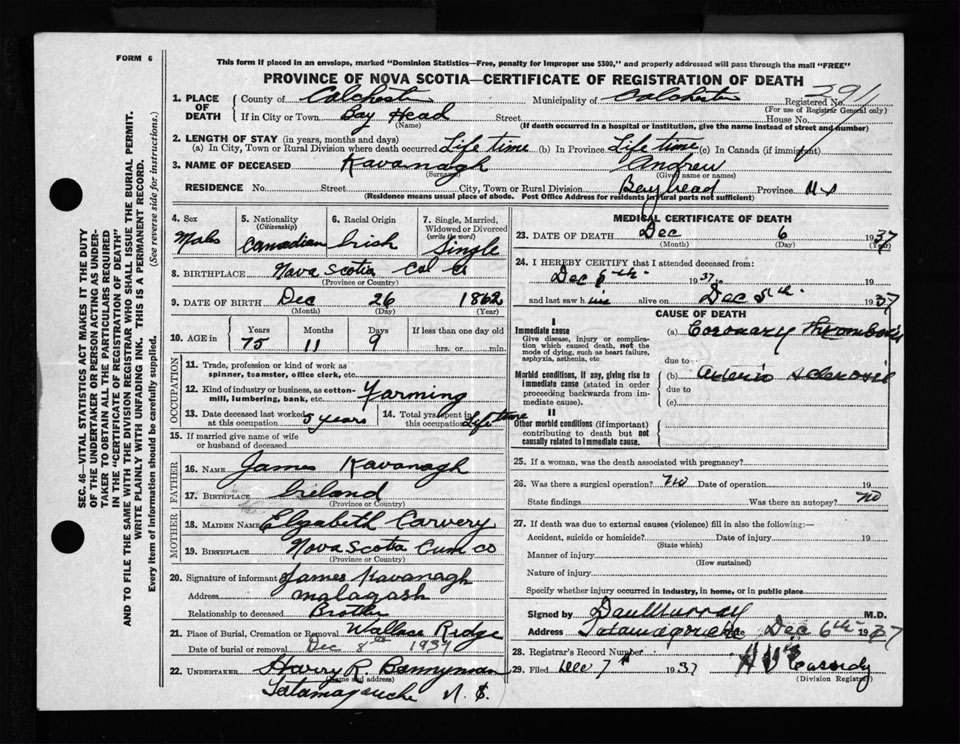 FORM 6
This form if placed in an envelope, marked "Dominion Statistics—Free, penalty for improper use $300," and properly addressed will pass through the mail "FREE"
PROVINCE OF NOVA SCOTIA—CERTIFICATE OF REGISTRATION OF DEATH
SEC. 46—VITAL STATISTICS ACT MAKES IT THE DUTY
OF THE UNDERTAKER OR PERSON ACTING AS UNDER-
TAKER TO OBTAIN ALL THE PARTICULARS REQUIRED
IN THE "CERTIFICATE OF REGISTRATION OF DEATH"
AND TO FILE THE SAME WITH THE DIVISION REGISTRAR WHO SHALL ISSUE THE BURIAL PERMIT.
WRITE PLAINLY WITH UNFADING INK. THIS IS A PERMANENT RECORD.
Every item of information should be carefully supplied. (See reverse side for instructions.)
1. PLACE OF DEATH
County of Colchester Municipality of Colchester Registered No. 2911
(For use of Registrar General only)
If in City or Town Bay Head Street House No.
(Name) (If death occurred in a hospital or institution, give the name instead of street and number)
2. LENGTH OF STAY (in years, months and days)
(a) In City, Town or Rural Division where death occurred Life time (b) In Province Life time (c) In Canada (if immigrant)
3. NAME OF DECEASED Kavanagh Andrew
(Surname) (Given name or names)
RESIDENCE No. Street City, Town or Rural Division Bayhead Province N S
(Residence means usual place of abode. Post Office Address for residents in rural parts not sufficient)
4. Sex Male
5. Nationality (Citizenship) Canadian
6. Racial Origin Irish
7. Single, Married, Widowed or Divorced (write the word) Single
8. BIRTHPLACE Nova Scotia Col Co
(Province or Country)
9. DATE OF BIRTH Dec 26 1862
(Month) (Day) (Year)
10. AGE in Years 75 Months 11 Days 9 If less than one day old hrs. or min.
OCCUPATION
11. Trade, profession or kind of work as spinner, teamster, office clerk, etc.
12. Kind of industry or business, as cotton-mill, lumbering, bank, etc. Farming
13. Date deceased last worked at this occupation 5 years
14. Total yrs. spent in this occupation Life time
15. If married give name of wife or husband of deceased
FATHER
16. NAME James Kavanagh
17. BIRTHPLACE Ireland
(Province or Country)
MOTHER
18. MAIDEN NAME Elizabeth Carvery
19. BIRTHPLACE Nova Scotia Cum co
(Province or Country)
20. Signature of informant James Kavanagh
Address Malagash
Relationship to deceased Brother
21. Place of Burial, Cremation or Removal Wallace Ridge
Date of burial or removal Dec 8th 1937
22. UNDERTAKER Harry R. Bannyman
(Name and address)
Tatamagouche N. S.
MEDICAL CERTIFICATE OF DEATH
23. DATE OF DEATH Dec 6 1937
(Month) (Day) (Year)
24. I HEREBY CERTIFY that I attended deceased from:
Dec 5th 1937
and last saw him alive on Dec 5th 1937
CAUSE OF DEATH
I
Immediate cause (a) Coronary Thrombosis
Give disease, injury or complication which caused death, not the mode of dying, such as heart failure, asphyxia, asthenia, etc
due to
Morbid conditions, if any, giving rise to immediate cause (stated in order proceeding backwards from immediate cause). (b) Arterio sclerosis
due to
(c)
II
Other morbid conditions (if important) contributing to death but not causally related to immediate cause.
25. If a woman, was the death associated with pregnancy?
26. Was there a surgical operation? No Date of operation 19
State findings Was there an autopsy? no
27. If death was due to external causes (violence) fill in also the following:—
Accident, suicide or homicide? Date of injury 19
(State which)
Manner of injury
(How sustained)
Nature of injury
Specify whether injury occurred in industry, in home, or in public place
Signed by Dan Murray M.D.
Address Tatamagouche Date Dec 6th 1937
28. Registrar's Record Number
29. Filed Dec 7th 1937 Cassidy
(Division Registrar)